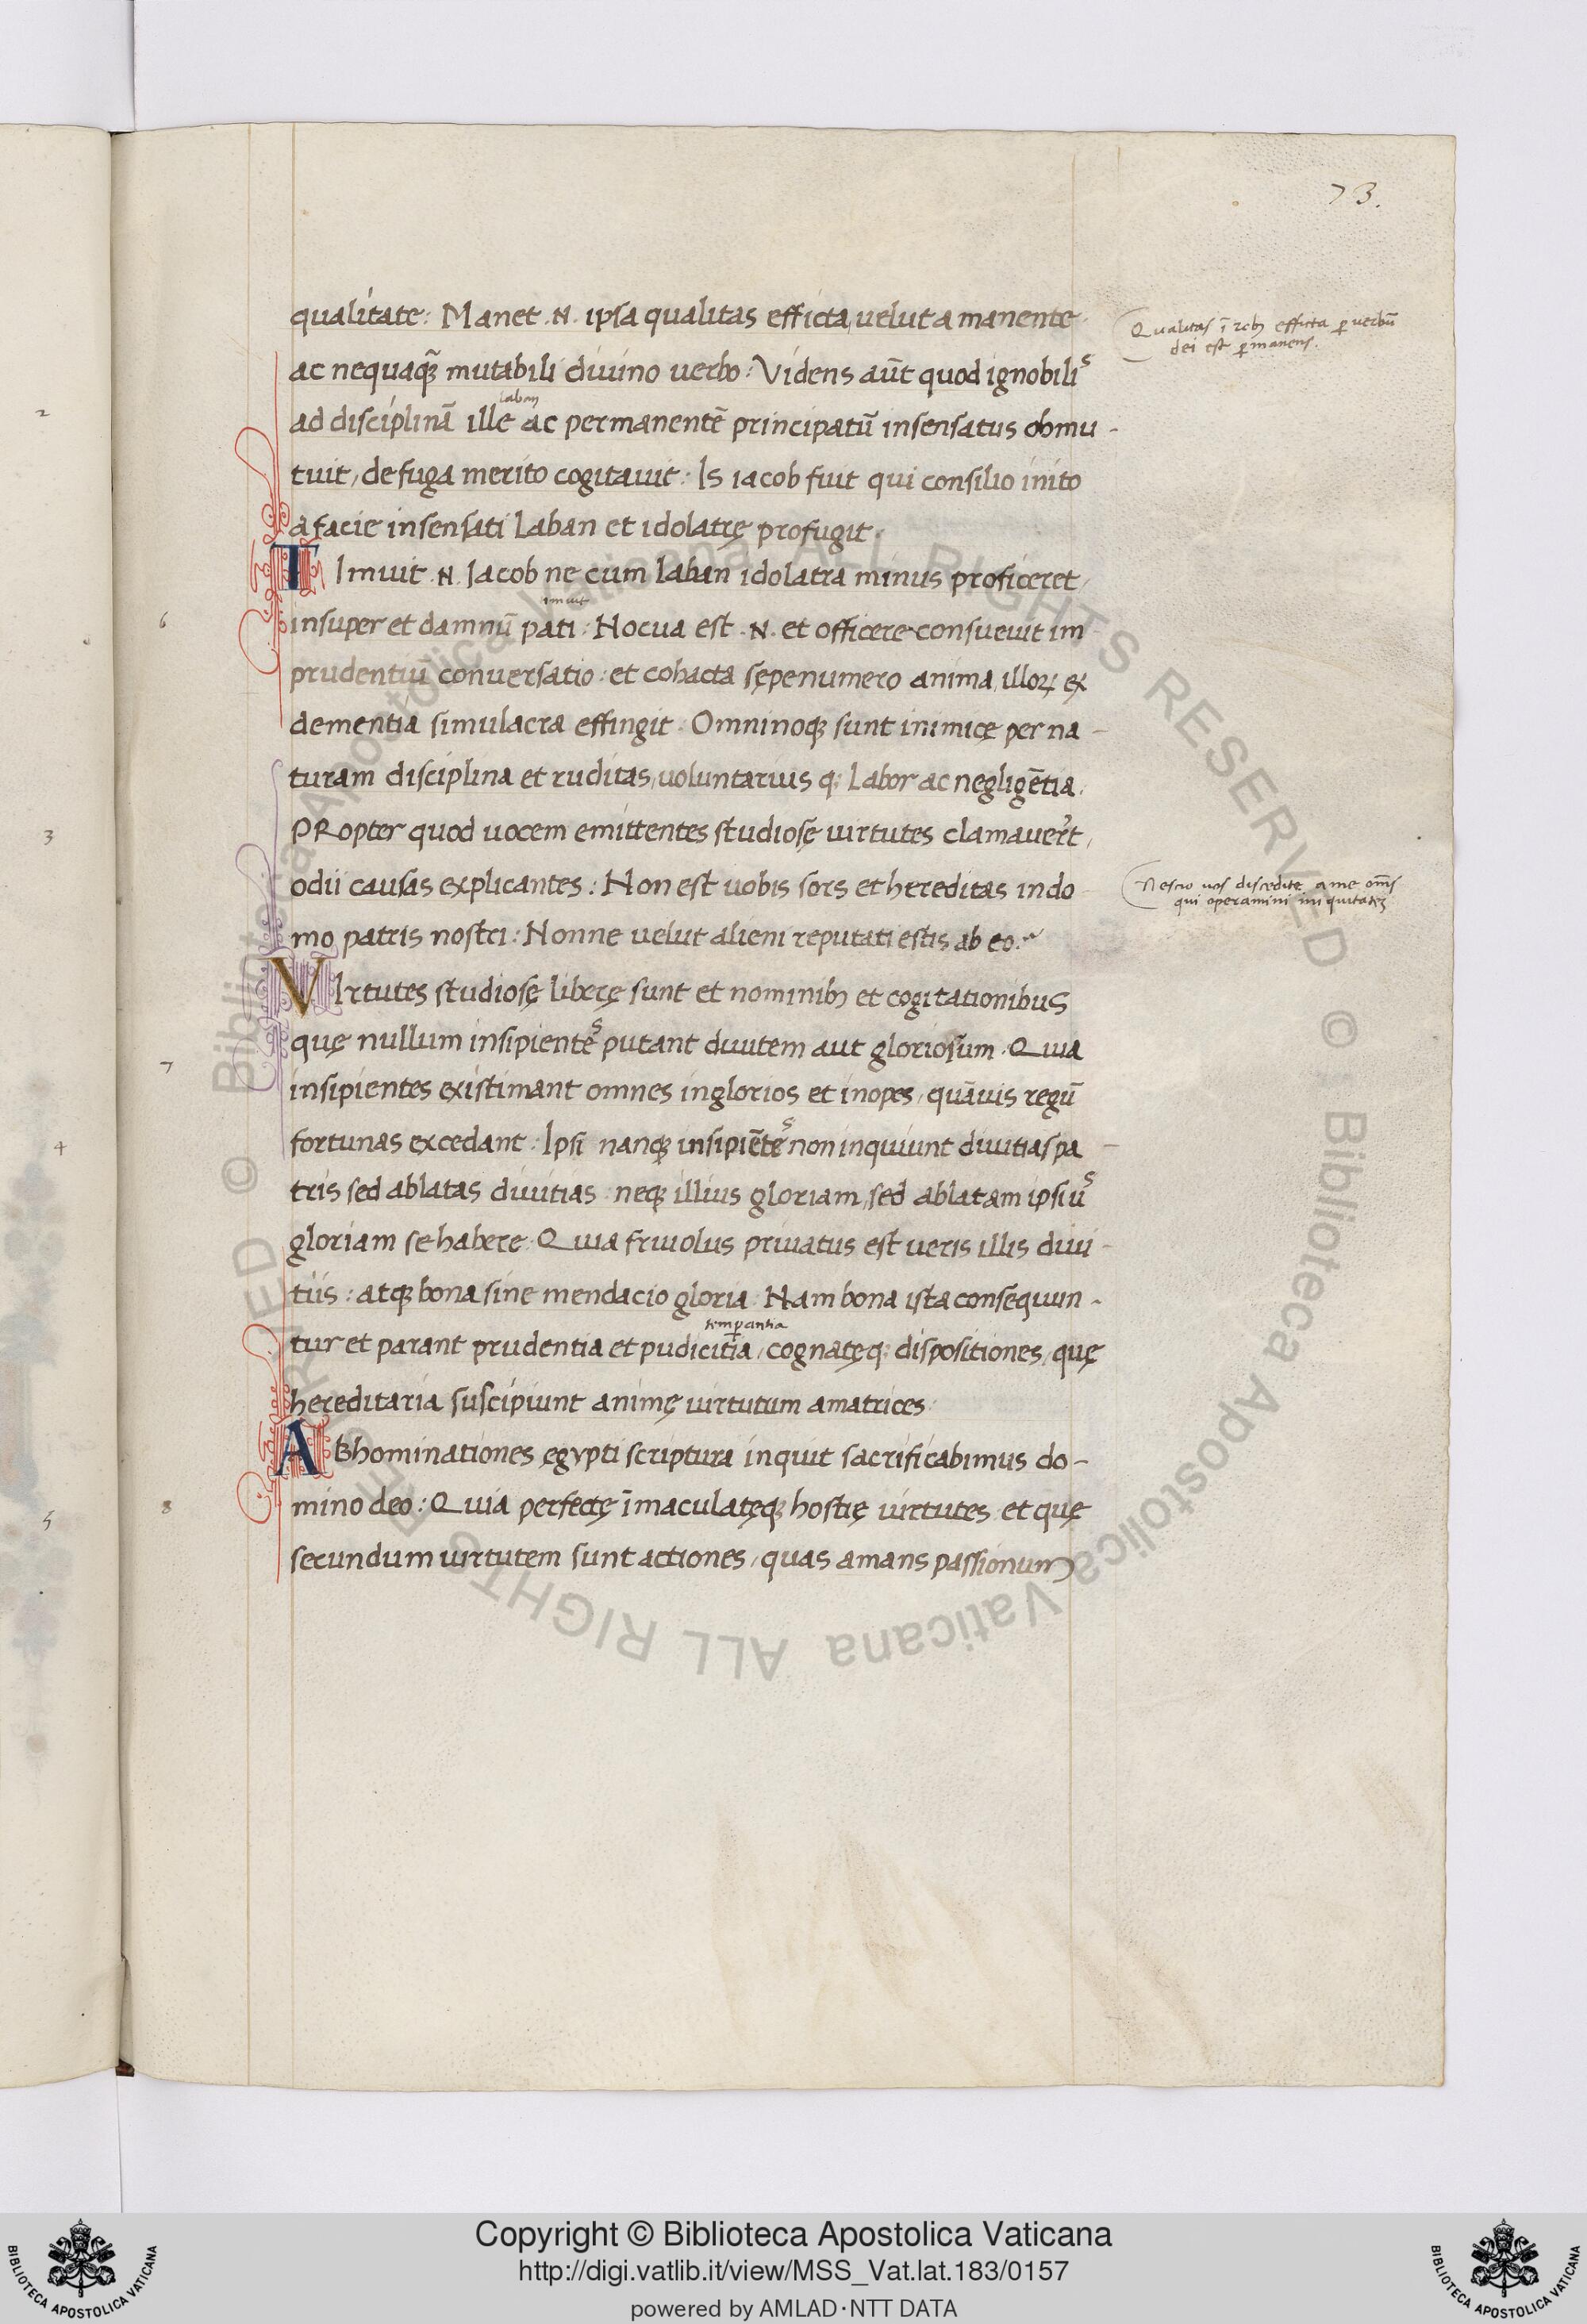 73.
qualitate: Manet .N. ipsa qualitas efficta, uelut a manente
ac nequaq̃ mutabili diuino uerbo: Videns aũt quod ignobilis
laban
ad disciplinã ille ac permanentẽ principatũ insensatus obmu-
tuit, de fuga merito cogitauit: Is iacob fuit qui consilio inito
a facie insensati Laban et idolatrę profugit.
TImuit .N. Iacob ne cum laban idolatra minus proficeret,
insuper et damnũ pati: Nocua est .N. et officere consueuit im
prudentiũ conuersatio: et cohacta sępenumero anima, illoꝝ ex
dementia simulacra effingit. Omninoqꝫ sunt inimicę per na-
turam disciplina et ruditas, uoluntarius qꝫ Labor ac negligẽtia.
PRopter quod uocem emittentes studiosę uirtutes clamauer̃t,
odii causas explicantes: Non est uobis sors et hereditas in do
mo patris nostri: Nonne uelut alieni reputati estis ab eo.
VIrtutes studiosę liberę sunt et nominibꝫ et cogitationibus
quę nullum insipientes putant diuitem aut gloriosum. Quia
insipientes existimant omnes inglorios et inopes, quãuis regũ
fortunas excedant: Ipsi nanqꝫ insipiẽtes non inquiunt diuitias pa-
tris sed ablatas diuitias: neqꝫ illius gloriam, sed ablatam ipsius
gloriam se habere. Quia friuolus priuatus est ueris illis diui-
tiis: atqꝫ bona sine mendacio gloria: Nam bona ista consequun-
temꝑantia
tur et parant prudentia et pudicitia, cognatęqꝫ dispositiones, quę
hereditaria suscipiunt animę uirtutum amatrices.
ABhominationes ęgypti scriptura inquit sacrificabimus do-
mino deo: Quia perfectę ĩmaculatęqꝫ hostię uirtutes et quę
secundum uirtutem sunt actiones, quas amans passionum
Qualitas ĩ rebꝫ efficta ꝑ uerbũ
dei est ꝑmanens.
Nescio uos discedite a me om̃s
qui operamini iniquitatẽ
2
3
4
5
6
7
8
© Biblioteca Apostolica Vaticana ALL RIGHTS RESERVED © Biblioteca Apostolica Vaticana ALL RIGHTS RESERVED
Copyright © Biblioteca Apostolica Vaticana
http://digi.vatlib.it/view/MSS_Vat.lat.183/0157
powered by AMLAD·NTT DATA
BIBLIOTECA APOSTOLICA VATICANA
BIBLIOTECA APOSTOLICA VATICANA